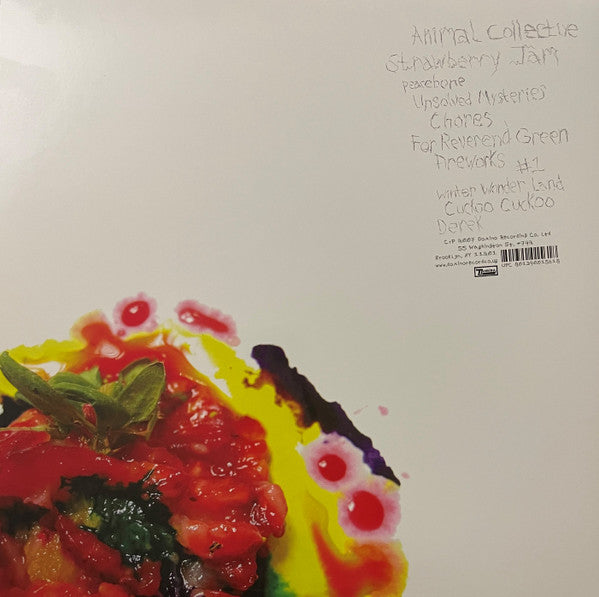 Animal Collective
Strawberry Jam
Peacebone
Unsolved Mysteries
Chores
For Reverend Green
Fireworks #1
Winter Wonder Land
Cuckoo Cuckoo
Derek
C+P 2007 Domino Recording Co. Ltd
55 Washington St.
Brooklyn, NY 11201
www.dominorecordco.us
UPC
Domino